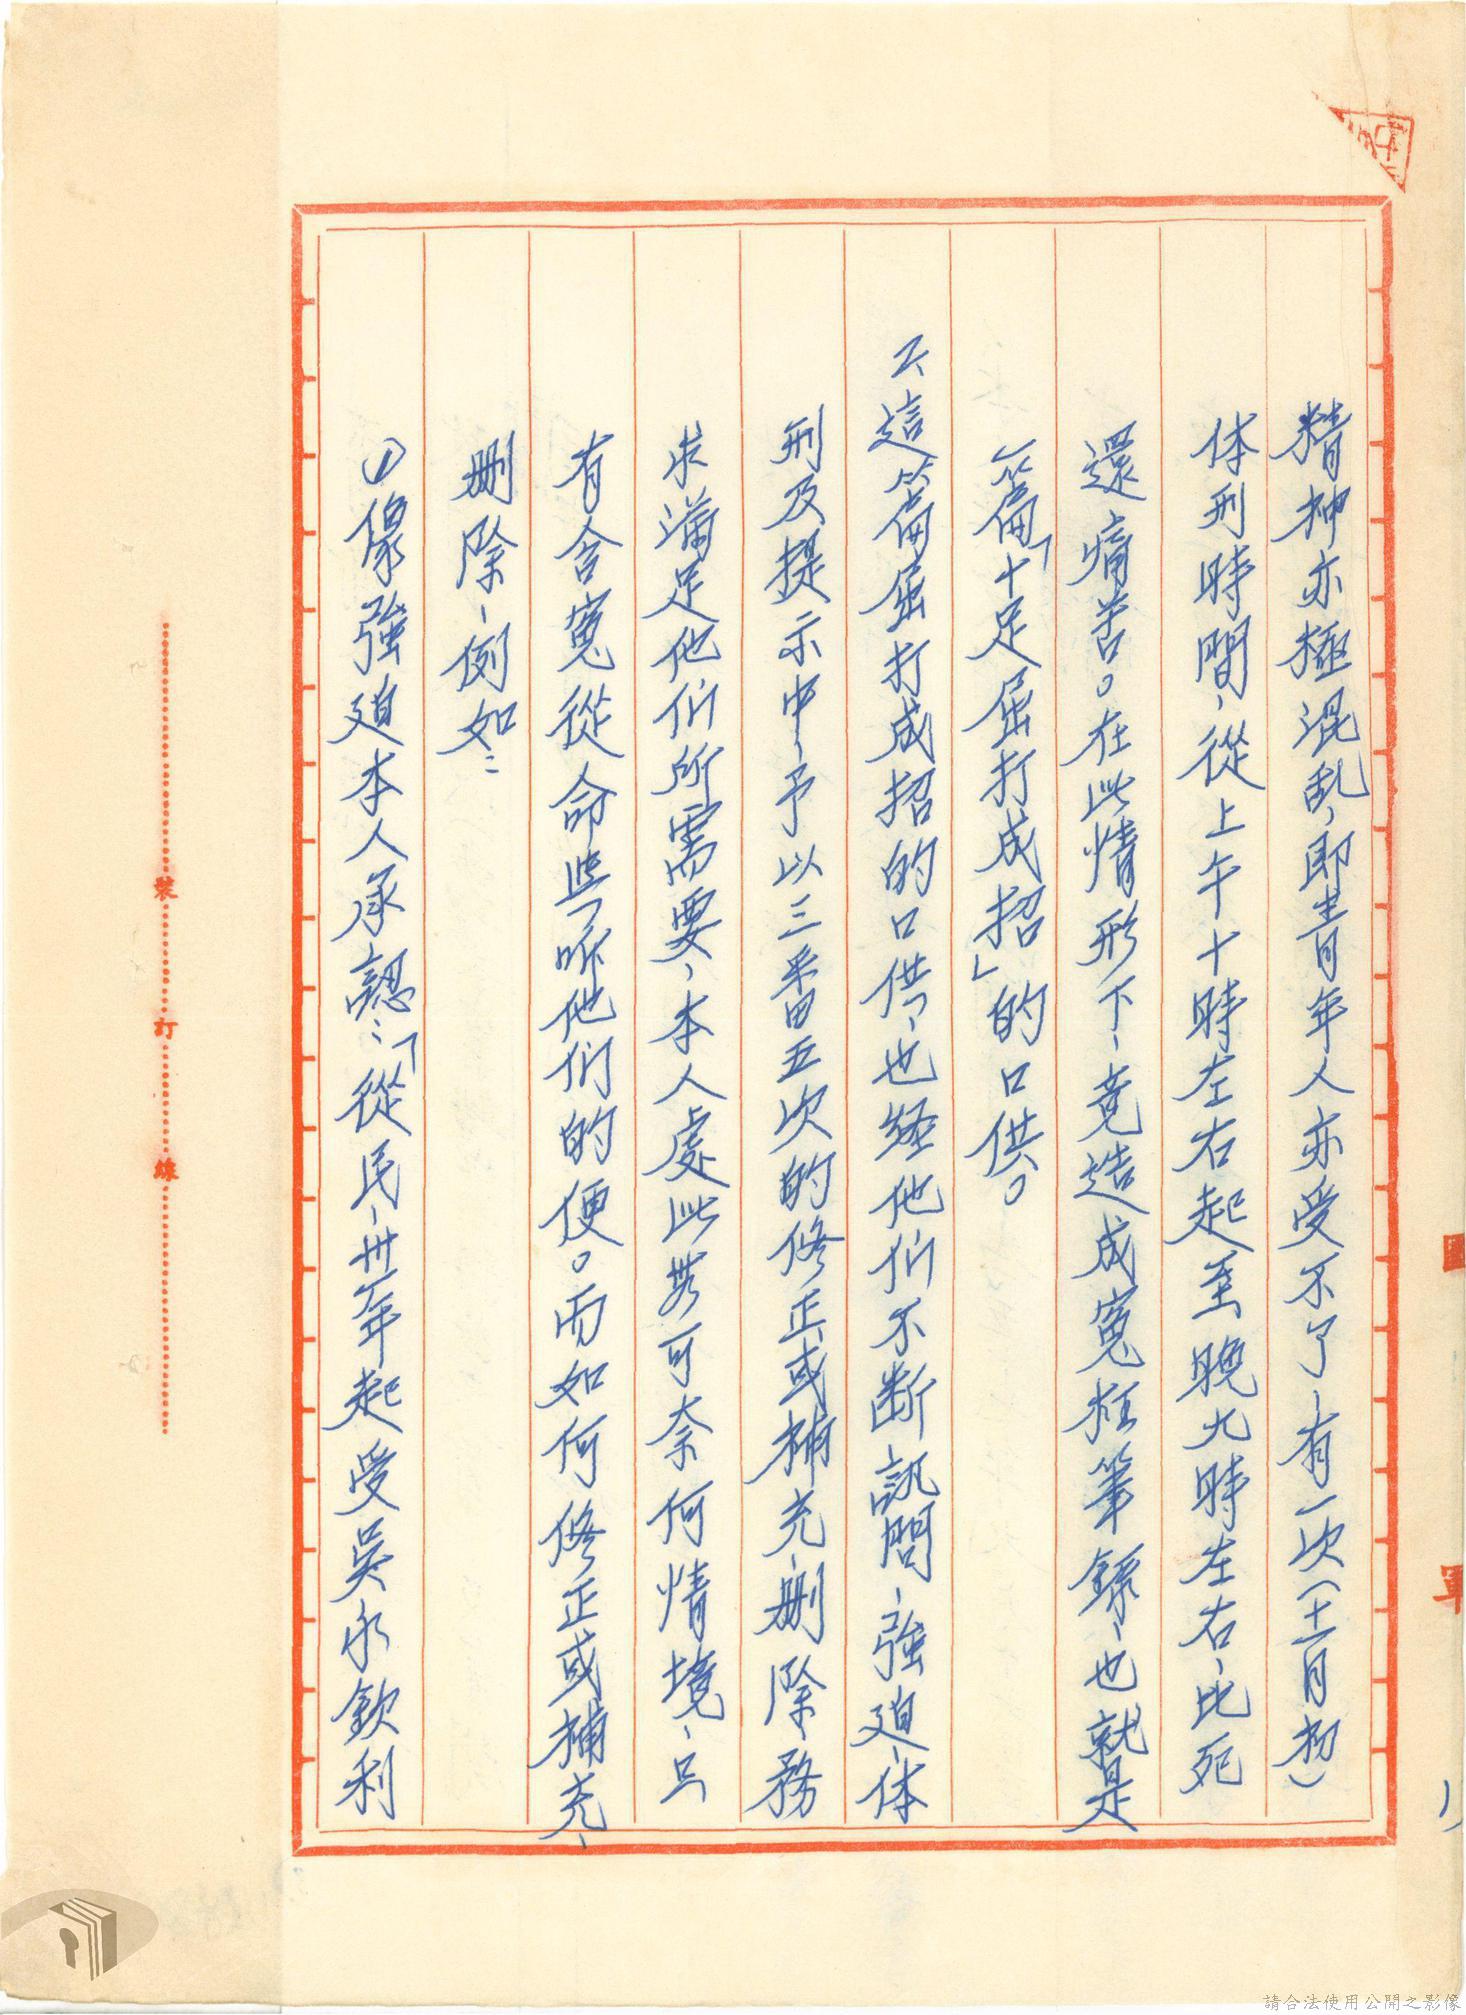 精神亦極混乱，即青年人亦受不了，有一次（十一月初）
体刑時間，從上午十時左右起至晚九時左右，比死
還痛苦。在此情形下，竟造成寃枉筆錄，也就是
一篇「十足屈打成招」的口供。
2、這篇屈打成招的口供，也経他们不断訊問，強迫，体
刑及提示中，予以三番五次的修正或補充，刪除，務
求滿足他们所需要，本人處此無可奈何情境，只
有含寃從命，些〻听他们的便。而如何修正或補充，
刪除，例如：
①像強迫本人承認：「從民卅一年起受吳永欽利
裝 訂 線
軍
請合法使用公開之影像